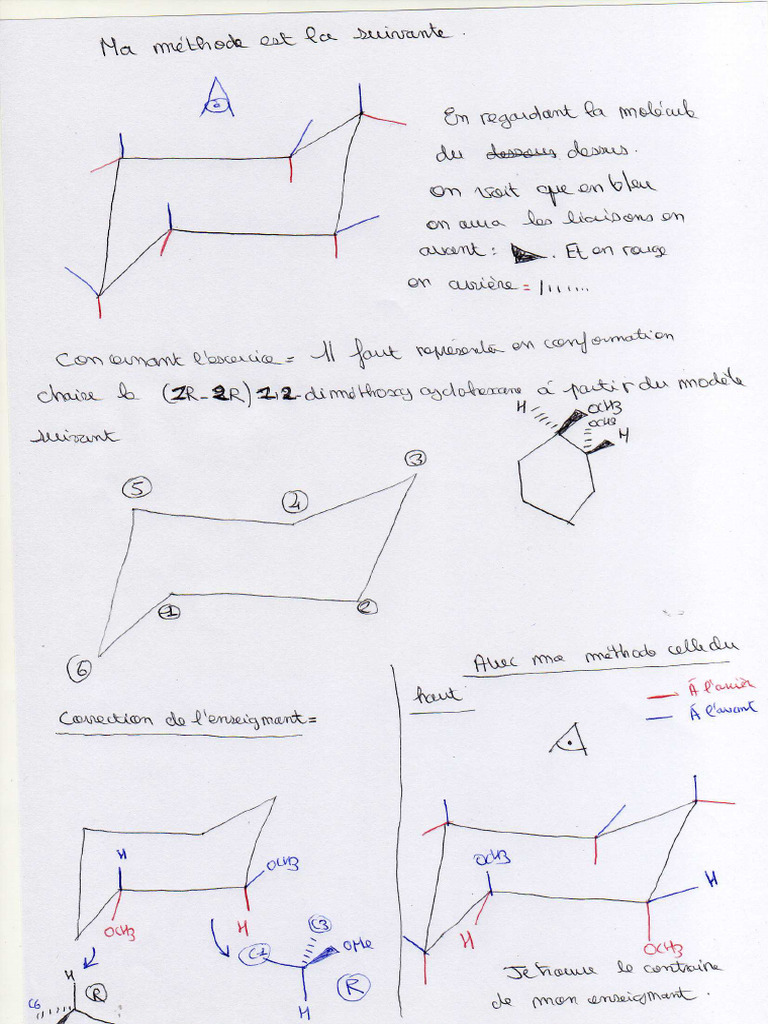 Ma méthode est la suivante.
En regardant la molécule
du dessous dessus.
on voit que en bleu
on aura les liaisons en
avant : . Et en rouge
en arrière =
Concernant l'exercice = Il faut représenter en conformation
chaise le (1R-2R) 1,2-diméthoxycyclohexane à partir du modèle
suivant
H OCH3
OCH3
H
3
5 4
1 2
6
Avec ma méthode celle du
haut
À l'arrière
À l'avant
Correction de l'enseignant =
H
OCH3
OCH3 H
C3
C1 OMe
H
R
H
C6
R
OCH3
H
H
OCH3
Je trouve le contraire
de mon enseignant.